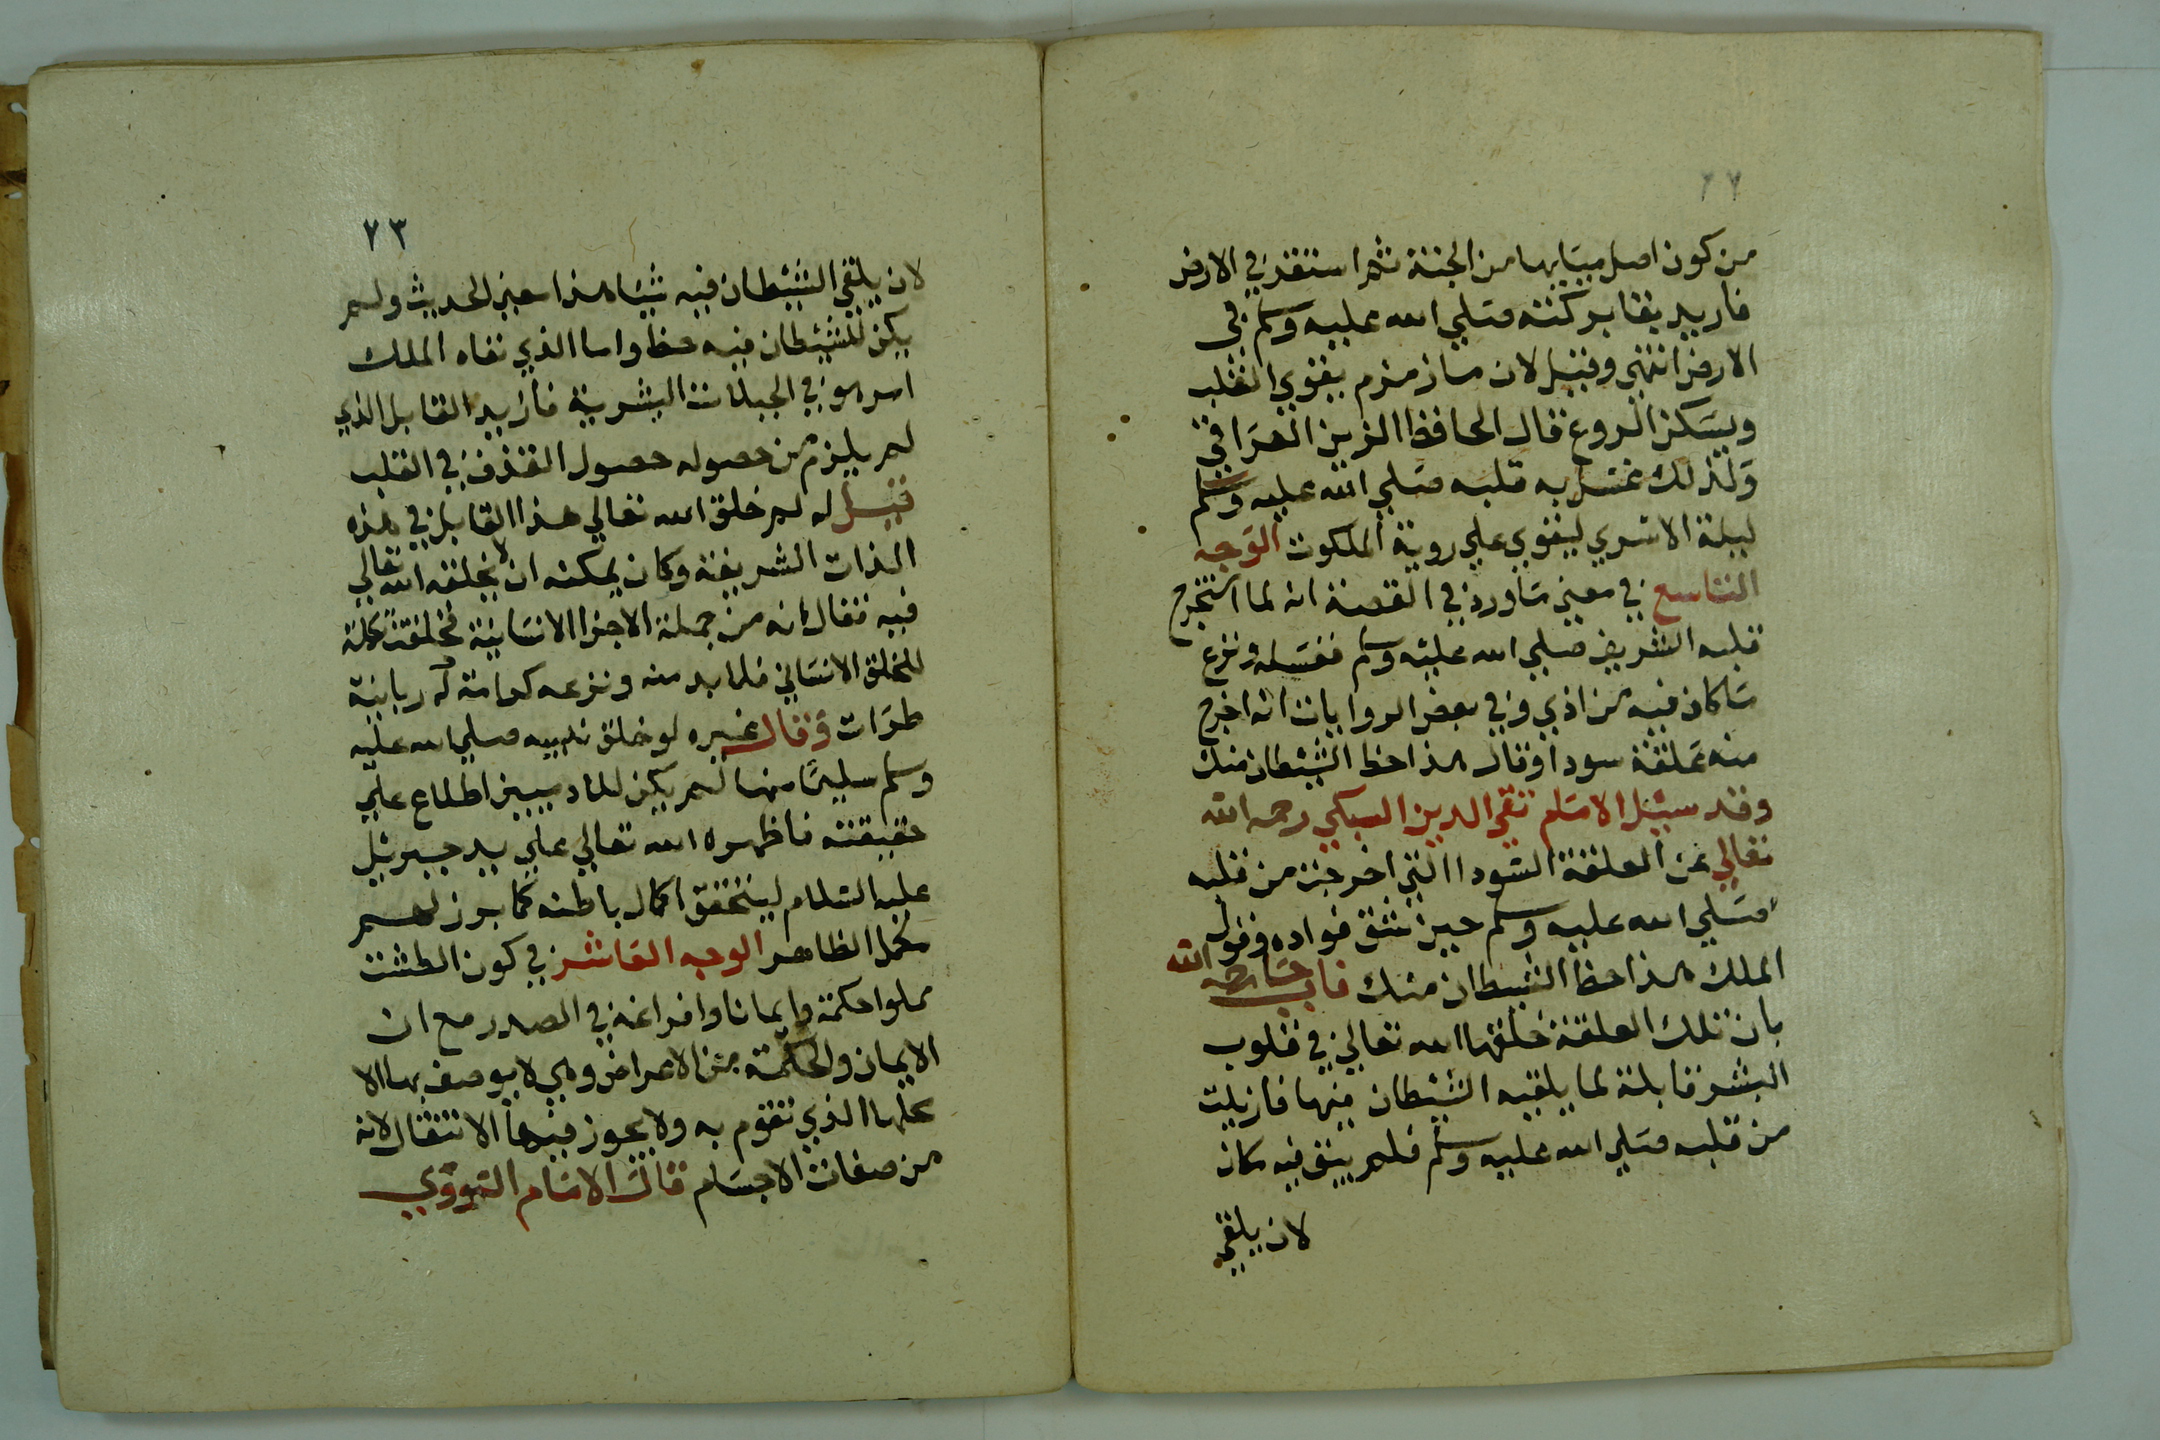 ٧٢
من كون اصل مياهها من الجنة ثم استقر في الارض
فاريد بقا بركته صلي الله عليه وسلم في
الارض انتهى وقيل لان ماء زمزم يقوي القلب
ويسكن الروع قال الحافظ الزين العراقي
ولذلك غسل به قلبه صلي الله عليه وسلم
ليلة الاسري ليقوي علي روية الملكوت الوجه
التاسع في معني ماورد في القصة انه لما استخرج
قلبه الشريف صلي الله عليه وسلم فغسله ونزع
ماكان فيه من اذي وفي بعض الروايات انه اخرج
منه علقة سودا وقال هذا حظ الشيطان منك
وقد سيل الامام تقي الدين السبكي رحمه الله
تعالي عن العلقة السودا التي اخرجت من قلبه
صلي الله عليه وسلم حين شق فواده وقول
الملك هذا حظ الشيطان منك فاجاب رحمه الله
بان تلك العلقة خلقها الله تعالي في قلوب
البشر قابلة لما يلقيه الشيطان فيها فازيلت
من قلبه صلي الله عليه وسلم فلم يبق فيه مكان
لان يلقي
٧٣
لان يلقي الشيطان فيه شيا هذا معني الحديث ولم
يكن للشيطان فيه حظ واما الذي نفاه الملك
امر هو في الجبلات البشرية فازيد القابل الذي
لم يلزم من حصوله حصول القذف في القلب
قيل له لم خلق الله تعالي هذا القابل في هذه
الذات الشريفة وكان يمكنه ان لا يخلقه الله تعالي
فيه فقال انه من جملة الاجزا الانسانية فخلقت تكملة
للخلق الانساني فلا بد منه ونزعه كرامة له ربانية
طرات وقال غيره لو خلق نبيه صلي الله عليه
وسلم سليما منها لم يكن للادميين اطلاع علي
حقيقته فاظهره الله تعالي علي يد جبريل
عليه السلام ليتحقق اكمال باطنه كما برز لهم
مكمل الظاهر الوجه العاشر في كون الطشت
مملوا حكمة وايمانا وافراغه في الصدر مع ان
الايمان والحكمة من الاعراض وهي لا يوصف بها الا
محلها الذي تقوم به ولا يجوز فيها الانتقال لانه
من صفات الاجسام قال الامام النووي